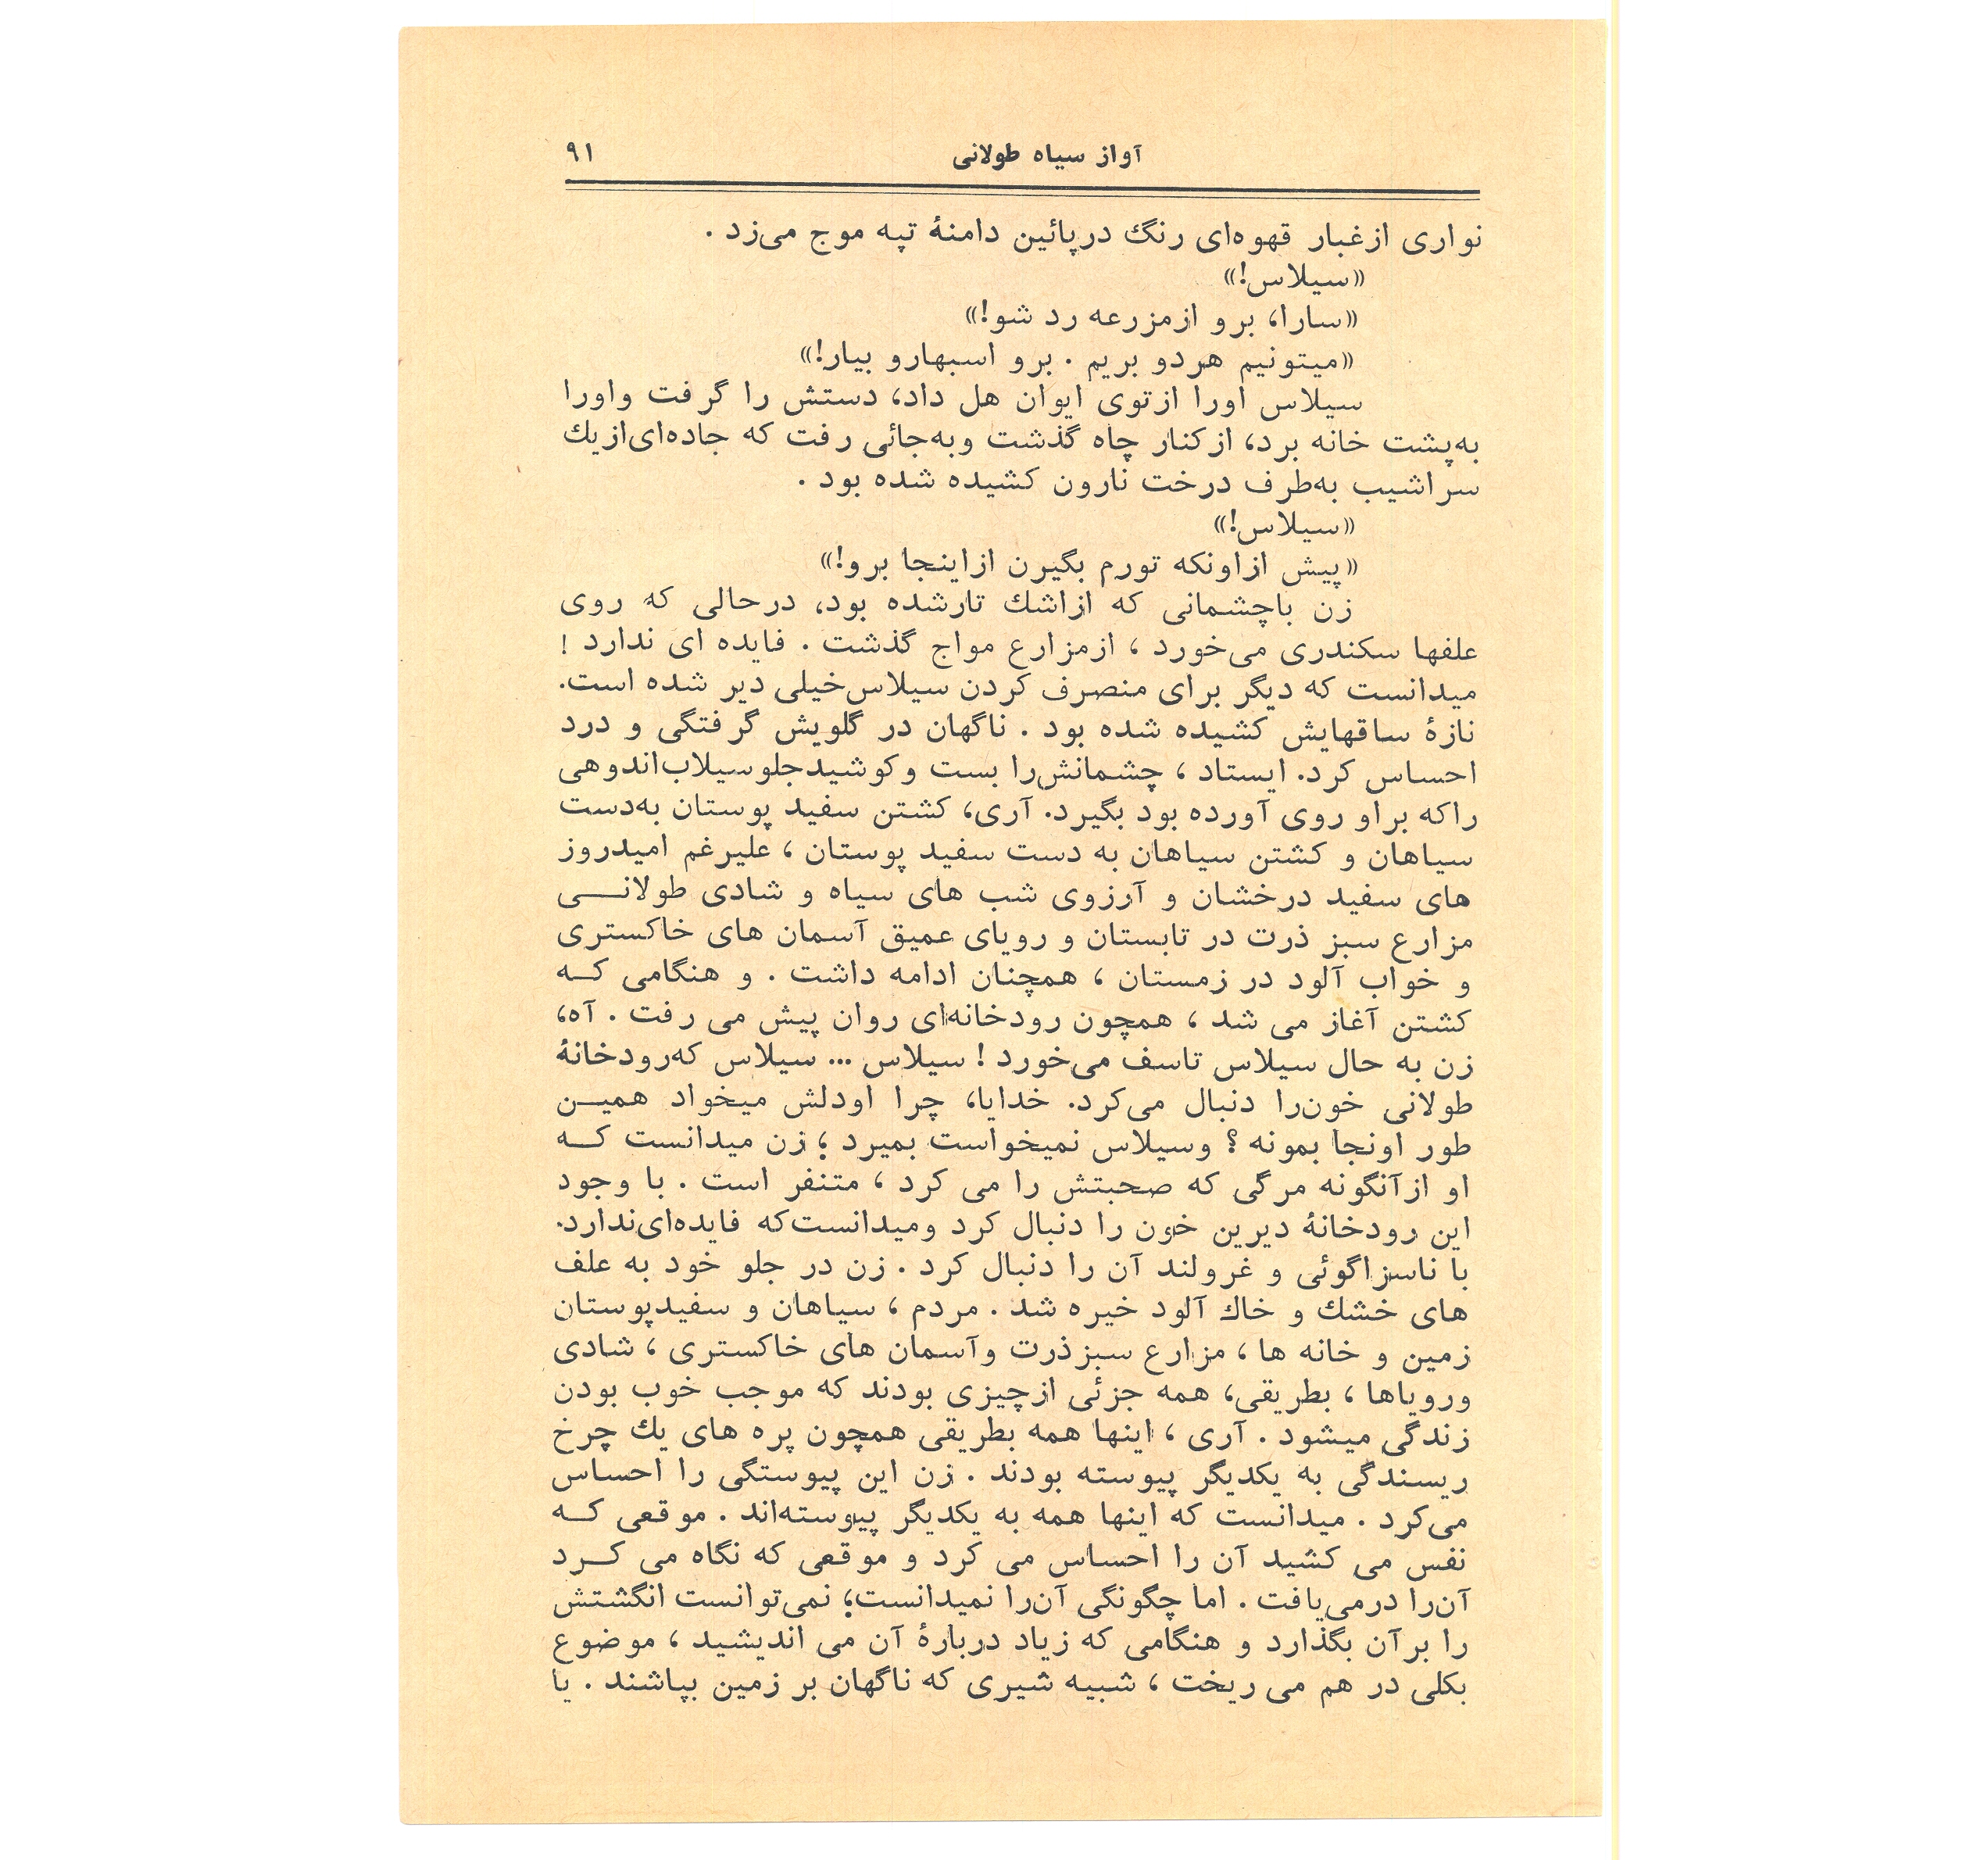 آواز سیاه طولانی ۹۱
نواری ازغبار قهوه‌ای رنگ درپائین دامنهٔ تپه موج می‌زد .
«سیلاس!»
«سارا، برو ازمزرعه رد شو!»
«میتونیم هردو بریم . برو اسبهارو بیار!»
سیلاس اورا ازتوی ایوان هل داد، دستش را گرفت واورا
به‌پشت خانه برد، ازکنار چاه گذشت وبه‌جائی رفت که جاده‌ای‌ازیك
سراشیب به‌طرف درخت نارون کشیده شده بود .
«سیلاس!»
«پیش ازاونکه تورم بگیرن ازاینجا برو!»
زن باچشمانی که ازاشك تارشده بود، درحالی که روی
علفها سکندری می‌خورد ، ازمزارع مواج گذشت . فایده ای ندارد !
میدانست که دیگر برای منصرف کردن سیلاس‌خیلی دیر شده است.
نازهٔ ساقهایش کشیده شده بود . ناگهان در گلویش گرفتگی و درد
احساس کرد. ایستاد ، چشمانش‌را بست وکوشیدجلوسیلاب‌اندوهی
راکه براو روی آورده بود بگیرد. آری، کشتن سفید پوستان به‌دست
سیاهان و کشتن سیاهان به دست سفید پوستان ، علیرغم امیدروز
های سفید درخشان و آرزوی شب های سیاه و شادی طولانـــی
مزارع سبز ذرت در تابستان و رویای عمیق آسمان های خاکستری
و خواب آلود در زمستان ، همچنان ادامه داشت . و هنگامی کــه
کشتن آغاز می شد ، همچون رودخانه‌ای روان پیش می رفت . آه،
زن به حال سیلاس تاسف می‌خورد ! سیلاس ... سیلاس که‌رودخانهٔ
طولانی خون‌را دنبال می‌کرد. خدایا، چرا اودلش میخواد همیــن
طور اونجا بمونه ؟ وسیلاس نمیخواست بمیرد ؛ زن میدانست کــه
او ازآنگونه مرگی که صحبتش را می کرد ، متنفر است . با وجود
این رودخانهٔ دیرین خون را دنبال کرد ومیدانست‌که فایده‌ای‌ندارد.
با ناسزاگوئی و غرولند آن را دنبال کرد . زن در جلو خود به علف
های خشك و خاك آلود خیره شد . مردم ، سیاهان و سفیدپوستان
زمین و خانه ها ، مزارع سبزذرت وآسمان های خاکستری ، شادی
ورویاها ، بطریقی، همه جزئی ازچیزی بودند که موجب خوب بودن
زندگی میشود . آری ، اینها همه بطریقی همچون پره های یك چرخ
ریسندگی به یکدیگر پیوسته بودند . زن این پیوستگی را احساس
می‌کرد . میدانست که اینها همه به یکدیگر پیوسته‌اند . موقعی کــه
نفس می کشید آن را احساس می کرد و موقعی که نگاه می کــرد
آن‌را درمی‌یافت . اما چگونگی آن‌را نمیدانست؛ نمی‌توانست انگشتش
را برآن بگذارد و هنگامی که زیاد دربارهٔ آن می اندیشید ، موضوع
بکلی در هم می ریخت ، شبیه شیری که ناگهان بر زمین بپاشند . یا